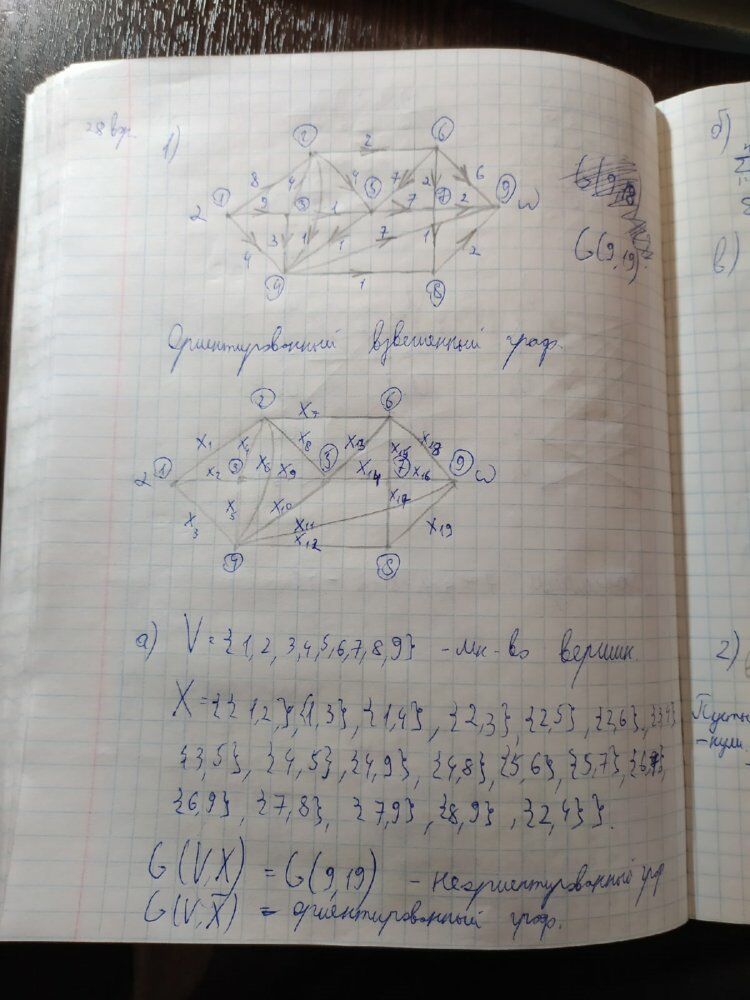 28 вар.
1)
2 6
2
8 4 4 7 2 6
1 3 5 7 9
2 9 1 7 2 ω
4 3 1 1 7 1 2
4 1 8
G(9,19)
Ориентированный взвешенный граф.
2 x7 6
x1 x4 x8 x13 x15 x18
2 1 x2 3 x6 x9 x14 7 x16 9 ω
x3 x5 x10 x17
x11 x19
x12
4 8
а) V = {1,2,3,4,5,6,7,8,9} - мн-во вершин.
X = {{1,2},{1,3},{1,4},{2,3},{2,5},{2,6},{3,4}
{3,5},{4,5},{4,9},{4,8},{5,6},{5,7},{6,7},
{6,9},{7,8},{7,9},{8,9},{2,4}}.
G(V,X) = G(9,19) - неориентированный гра
G(V,X) = ориентированный граф.
б)
в)
2)
Пусть
-нули